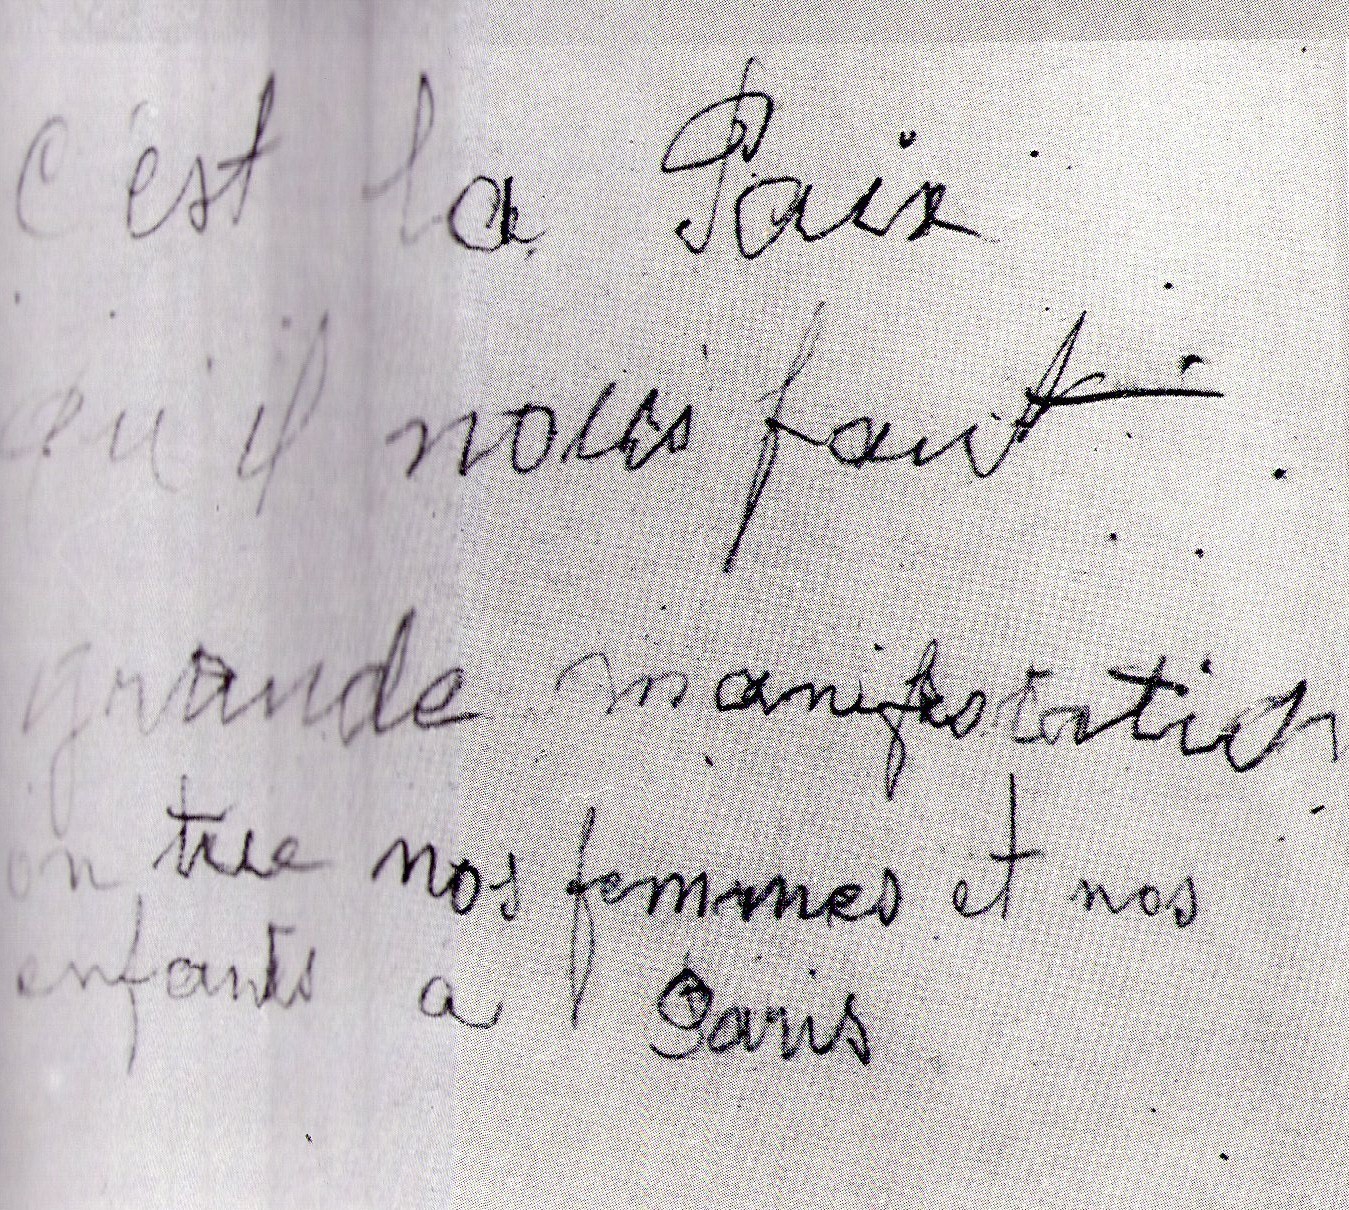 c'est la Paix
qu'il nous faut
grande manifestation
on tue nos femmes et nos
enfants a Paris